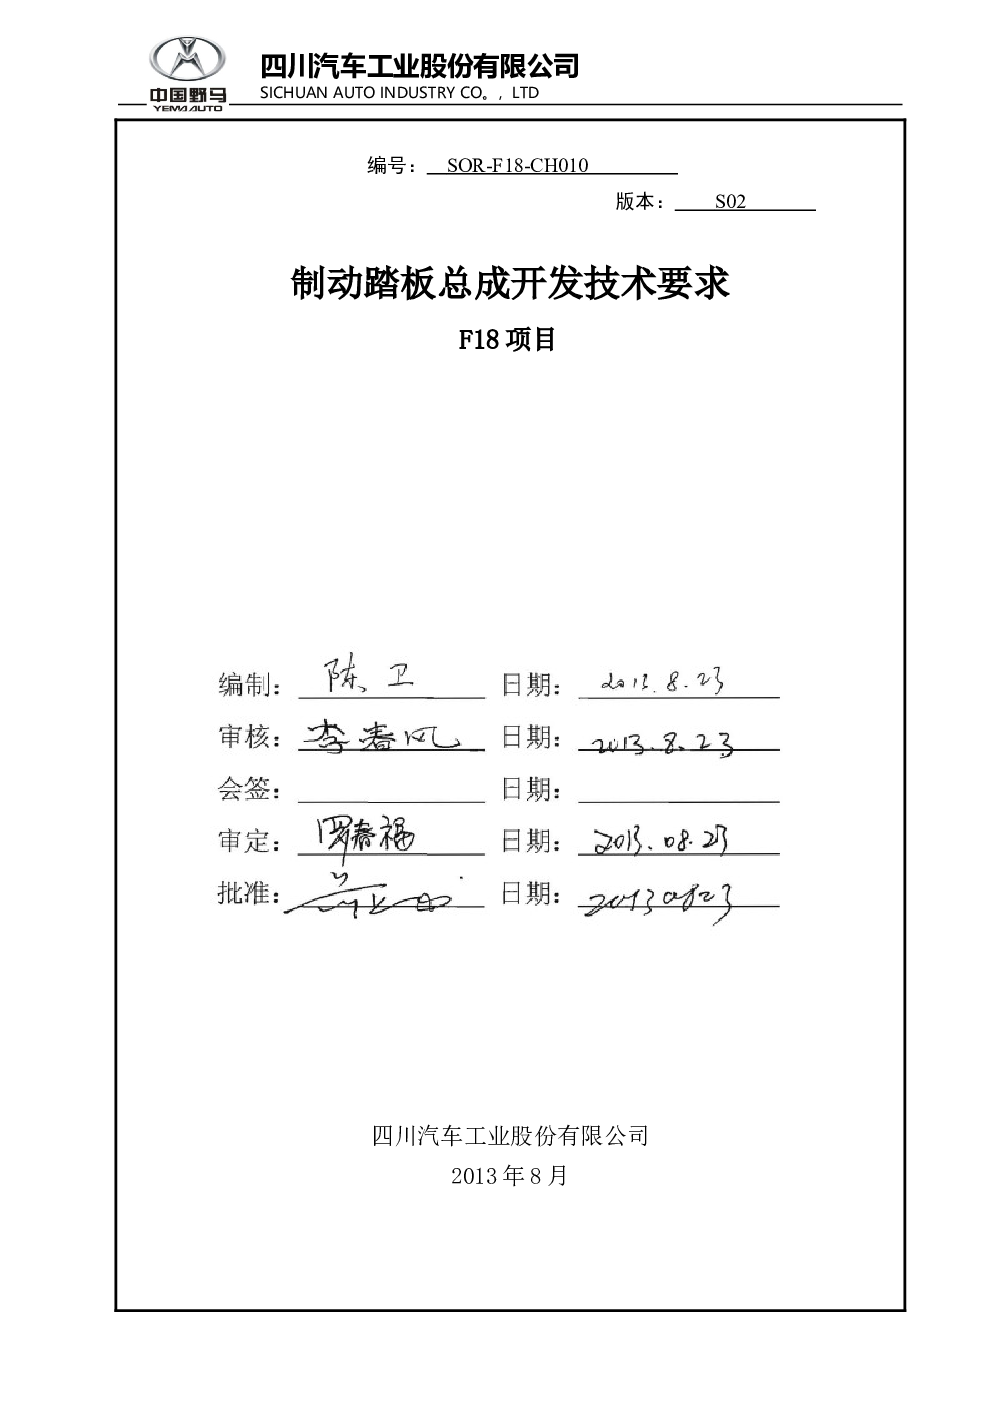 四川汽车工业股份有限公司
中国野马 SICHUAN AUTO INDUSTRY CO。, LTD
YEMA AUTO
编号： SOR-F18-CH010
版本： S02
制动踏板总成开发技术要求
F18 项目
编制： 陈卫 日期： 2013.8.23
审核： 李春风 日期： 2013.8.23
会签： 日期：
审定： 罗春福 日期： 2013.08.23
批准： 日期： 20130823
四川汽车工业股份有限公司
2013 年 8 月